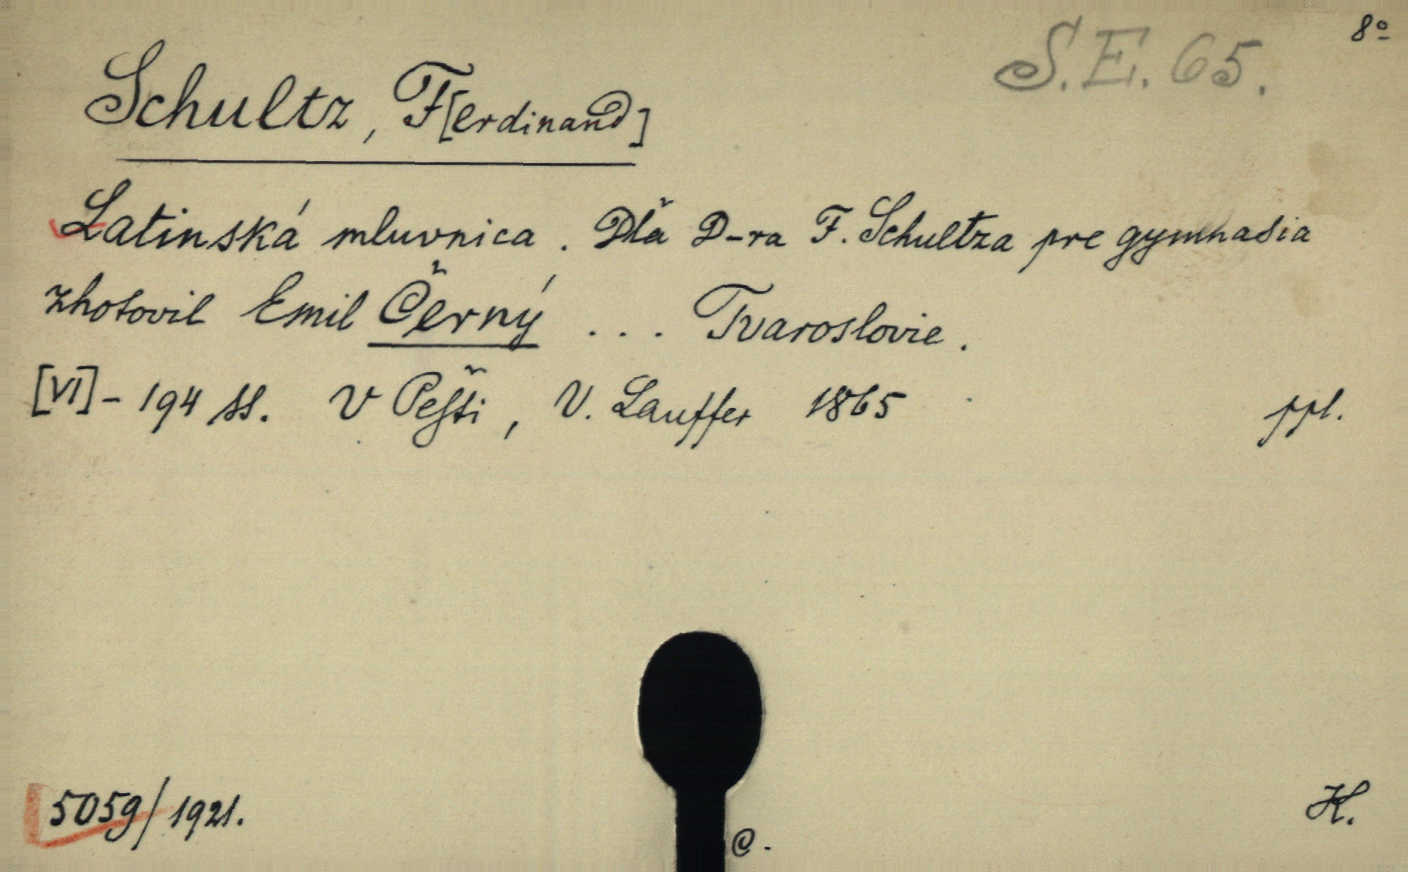 8º
S.E. 65.
Schultz, F[erdinand]
Latinská mluvnica. Dľa D-ra F. Schultza pre gymnasia
zhotovil Emil Černý ... Tvaroslovie.
[VI]-194 ss. V Pešti, V. Lauffer 1865 ppl.
5059/1921.
C.
H.